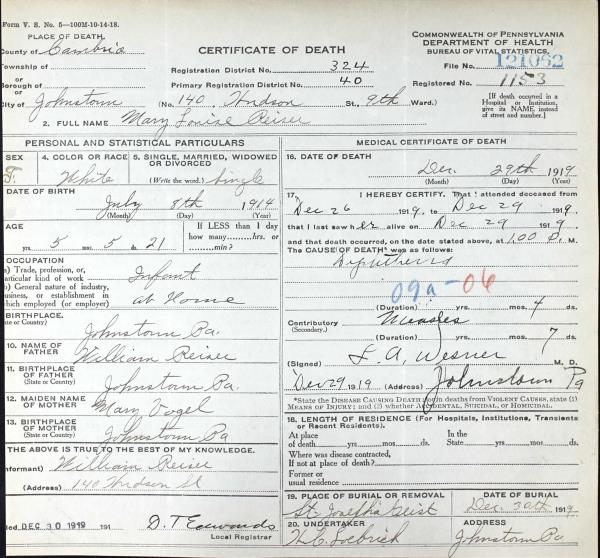 Form V. S. No. 5—100M-10-14-18.
PLACE OF DEATH
County of Cambria
Township of
or
Borough of
or
City of Johnstown
CERTIFICATE OF DEATH
Registration District No. 324
Primary Registration District No. 40
(No. 140, Hudson St. 9th Ward.)
COMMONWEALTH OF PENNSYLVANIA
DEPARTMENT OF HEALTH
BUREAU OF VITAL STATISTICS.
File No. 121062
Registered No. 1153
[If death occurred in a Hospital or Institution, give its NAME, instead of street and number.]
2. FULL NAME Mary Louise Reiser
PERSONAL AND STATISTICAL PARTICULARS
SEX F.
4. COLOR OR RACE White
5. SINGLE, MARRIED, WIDOWED OR DIVORCED
(Write the word.) Single
DATE OF BIRTH
July 8th 1914
(Month) (Day) (Year)
AGE
5 yrs. 5 mos. 21 ds.
If LESS than 1 day how many hrs. or min.?
OCCUPATION
(a) Trade, profession, or, particular kind of work Infant
(b) General nature of industry, business, or establishment in which employed (or employer) at Home
BIRTHPLACE.
(State or Country) Johnstown Pa.
10. NAME OF FATHER William Reiser
11. BIRTHPLACE OF FATHER
(State or Country) Johnstown Pa.
12. MAIDEN NAME OF MOTHER Mary Vogel
13. BIRTHPLACE OF MOTHER
(State or Country) Johnstown Pa
THE ABOVE IS TRUE TO THE BEST OF MY KNOWLEDGE.
(Informant) William Reiser
(Address) 140 Hudson St
Filed DEC 30 1919 191
D. T Edwards
Local Registrar
MEDICAL CERTIFICATE OF DEATH
16. DATE OF DEATH
Dec. 29th 1919
(Month) (Day) (Year)
17. I HEREBY CERTIFY, That I attended deceased from
Dec 26 1919, to Dec 29 1919.
that I last saw her alive on Dec 29 1919
and that death occurred, on the date stated above, at 1.00 P. M.
The CAUSE OF DEATH* was as follows:
Diphtheria
09a-06
(Duration) yrs. mos. 4 ds.
Contributory Measles
(Secondary.)
(Duration) yrs. mos. 7 ds.
(Signed) L. A. Wesner M. D.
Dec 29 1919 (Address) Johnstown Pa
*State the DISEASE CAUSING DEATH; or in deaths from VIOLENT CAUSES, state (1) MEANS OF INJURY; and (2) whether ACCIDENTAL, SUICIDAL, or HOMICIDAL.
18. LENGTH OF RESIDENCE (For Hospitals, Institutions, Transients or Recent Residents).
At place of death yrs. mos. ds.
In the State yrs. mos. ds.
Where was disease contracted,
If not at place of death?
Former or
usual residence
19. PLACE OF BURIAL OR REMOVAL
DATE OF BURIAL
Dec. 30th 1919
20. UNDERTAKER
ADDRESS
Johnstown Pa